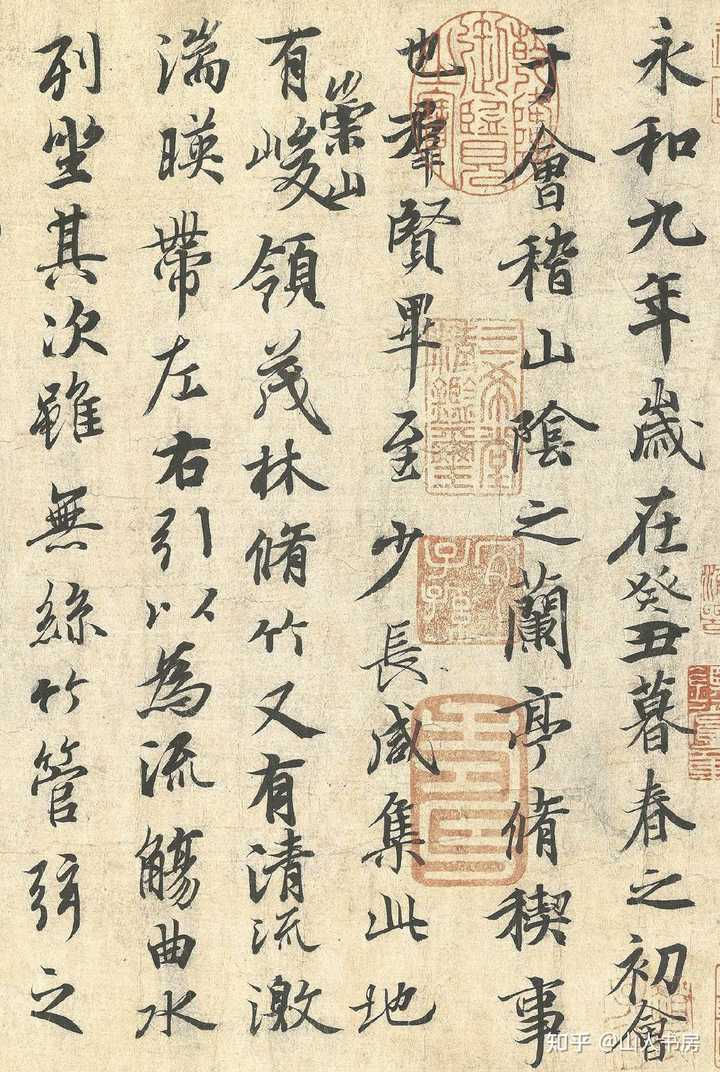 永和九年歲在癸丑暮春之初會
于會稽山陰之蘭亭脩稧事
也羣賢畢至少長咸集此地
有崇山峻領茂林脩竹又有清流激
湍暎帶左右引以為流觴曲水
列坐其次雖無絲竹管弦之
三希堂
精鑑璽
宜
子孫
知乎 @山人书房